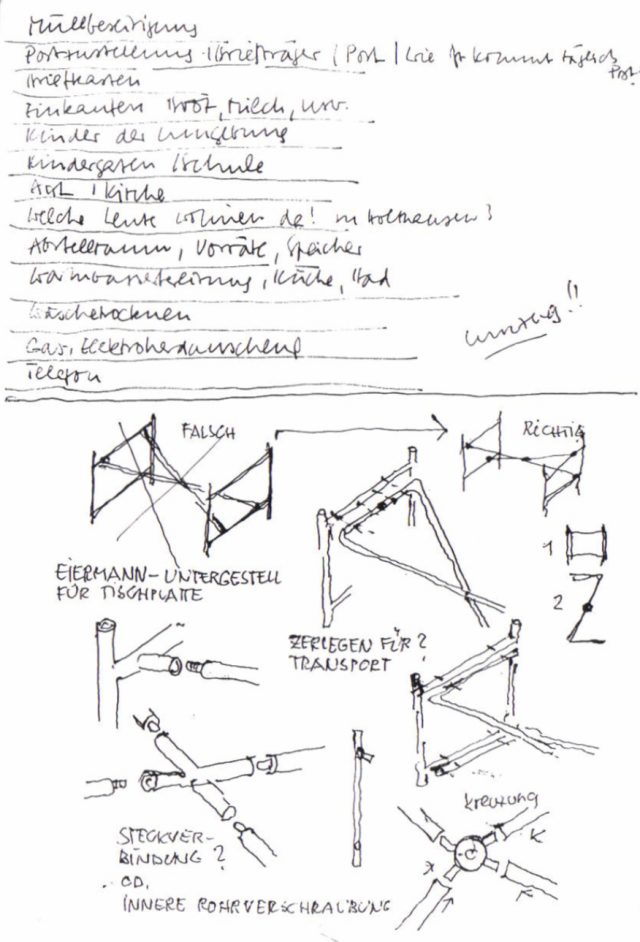 Müllbeseitigung
Postzustellung, Briefträger / Post / wie oft kommt täglich Post
Briefkasten
Einkaufen Brot, Milch, usw.
Kinder der Umgebung
Kindergarten / Schule
Arzt / Kirche
Welche Leute wohnen da! in Holthausen?
Abstellraum, Vorräte, Speicher
Warmwasserbereitung, Küche, Bad
Wäschetrocknen
Gas, Elektroherdanschluß
Telefon
Umzug!!
FALSCH
RICHTIG
EIERMANN-UNTERGESTELL
FÜR TISCHPLATTE
1
2
ZERLEGEN FÜR?
TRANSPORT
Kreuzung
STECKVER-
BINDUNG?
OD.
INNERE ROHRVERSCHRAUBUNG